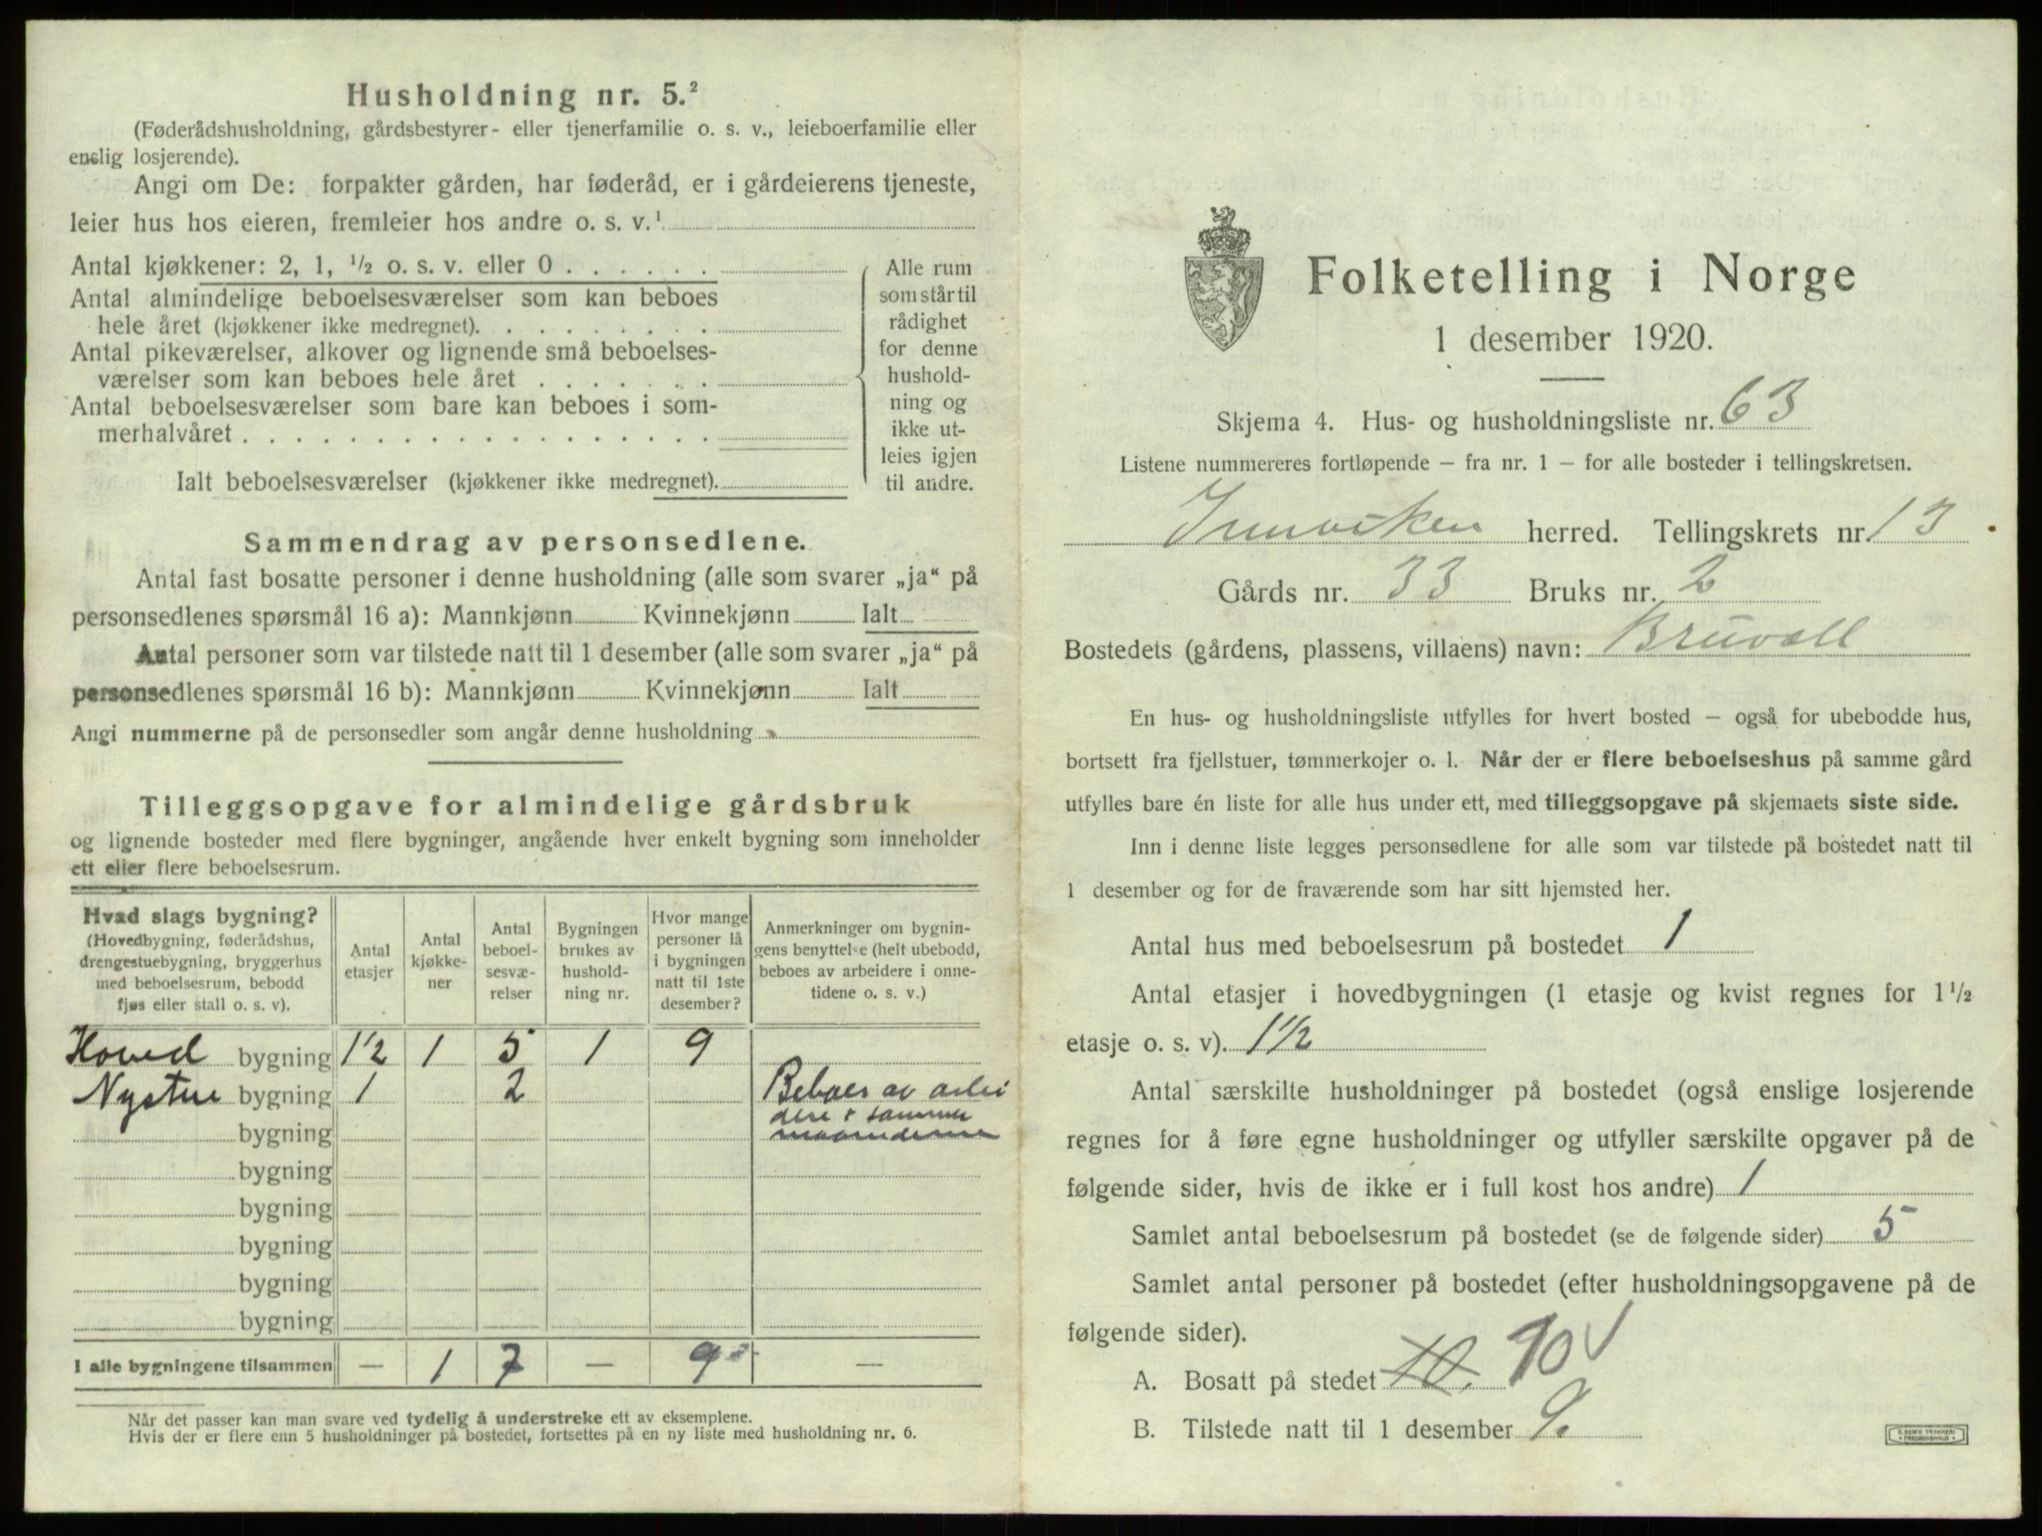 Husholdning nr. 5.²
(Føderådshusholdning, gårdsbestyrer- eller tjenerfamilie o. s. v., leieboerfamilie eller
enslig losjerende).
Angi om De: forpakter gården, har føderåd, er i gårdeierens tjeneste,
leier hus hos eieren, fremleier hos andre o. s. v.¹
Antal kjøkkener: 2, 1, ½ o. s. v. eller 0 . . . . . .
Antal almindelige beboelsesværelser som kan beboes
hele året (kjøkkener ikke medregnet). . . . . . . . .
Antal pikeværelser, alkover og lignende små beboelses-
værelser som kan beboes hele året . . . . . . .
Antal beboelsesværelser som bare kan beboes i som-
merhalvåret . . . . . . . . . . . . . . . . . .
Ialt beboelsesværelser (kjøkkener ikke medregnet).
Alle rum
som står til
rådighet
for denne
hushold-
ning og
ikke ut-
leies igjen
til andre.
Sammendrag av personsedlene.
Antal fast bosatte personer i denne husholdning (alle som svarer „ja“ på
personsedlenes spørsmål 16 a): Mannkjønn Kvinnekjønn Ialt
Antal personer som var tilstede natt til 1 desember (alle som svarer „ja“ på
personsedlenes spørsmål 16 b): Mannkjønn Kvinnekjønn Ialt
Angi nummerne på de personsedler som angår denne husholdning
Tilleggsopgave for almindelige gårdsbruk
og lignende bosteder med flere bygninger, angående hver enkelt bygning som inneholder
ett eller flere beboelsesrum.
Hvad slags bygning?
(Hovedbygning, føderådshus,
drengestuebygning, bryggerhus
med beboelsesrum, bebodd
fjøs eller stall o. s. v).
Antal
etasjer
Antal
kjøkke-
ner
Antal
beboel-
sesvæ-
relser
Bygningen
brukes av
hushold-
ning nr.
Hvor mange
personer lå
i bygningen
natt til 1ste
desember?
Anmerkninger om bygnin-
gens benyttelse (helt ubebodd,
beboes av arbeidere i onne-
tidene o. s. v.)
Hoved bygning 1½ 1 5 1 9
Nystue bygning 1 2 Beboes av arbei
dere i sommer
bygning maanederne
bygning
bygning
bygning
bygning
bygning
I alle bygningene tilsammen — 1 7 — 9 —
Når det passer kan man svare ved tydelig å understreke ett av eksemplene.
Hvis der er flere enn 5 husholdninger på bostedet, fortsettes på en ny liste med husholdning nr. 6.
Folketelling i Norge
1 desember 1920.
Skjema 4. Hus- og husholdningsliste nr. 63
Listene nummereres fortløpende – fra nr. 1 – for alle bosteder i tellingskretsen.
Innviken herred. Tellingskrets nr. 13
Gårds nr. 33 Bruks nr. 2
Bostedets (gårdens, plassens, villaens) navn: Bruvoll
En hus- og husholdningsliste utfylles for hvert bosted – også for ubebodde hus,
bortsett fra fjellstuer, tømmerkojer o. l. Når der er flere beboelseshus på samme gård
utfylles bare én liste for alle hus under ett, med tilleggsopgave på skjemaets siste side.
Inn i denne liste legges personsedlene for alle som var tilstede på bostedet natt til
1 desember og for de fraværende som har sitt hjemsted her.
Antal hus med beboelsesrum på bostedet 1
Antal etasjer i hovedbygningen (1 etasje og kvist regnes for 1½
etasje o. s. v). 1½
Antal særskilte husholdninger på bostedet (også enslige losjerende
regnes for å føre egne husholdninger og utfyller særskilte opgaver på de
følgende sider, hvis de ikke er i full kost hos andre) 1
Samlet antal beboelsesrum på bostedet (se de følgende sider) 5
Samlet antal personer på bostedet (efter husholdningsopgavene på de
følgende sider).
A. Bosatt på stedet 10. 10 √
B. Tilstede natt til 1 desember 9.